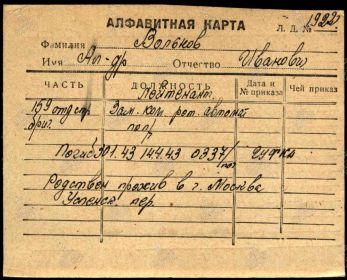 АЛФАВИТНАЯ КАРТА
Л. Д. № 1922
Фамилия Вольков
Имя Ал-др Отчество Иванович
ЧАСТЬ ДОЛЖНОСТЬ Дата и № приказа Чей приказ
Лейтенант
159 отд стр Зам. ком. рот. автомат
бриг.
Погиб 30 1.43 14.4.43 0337/
Родствен прожив в г. Москва
Успенск пер.